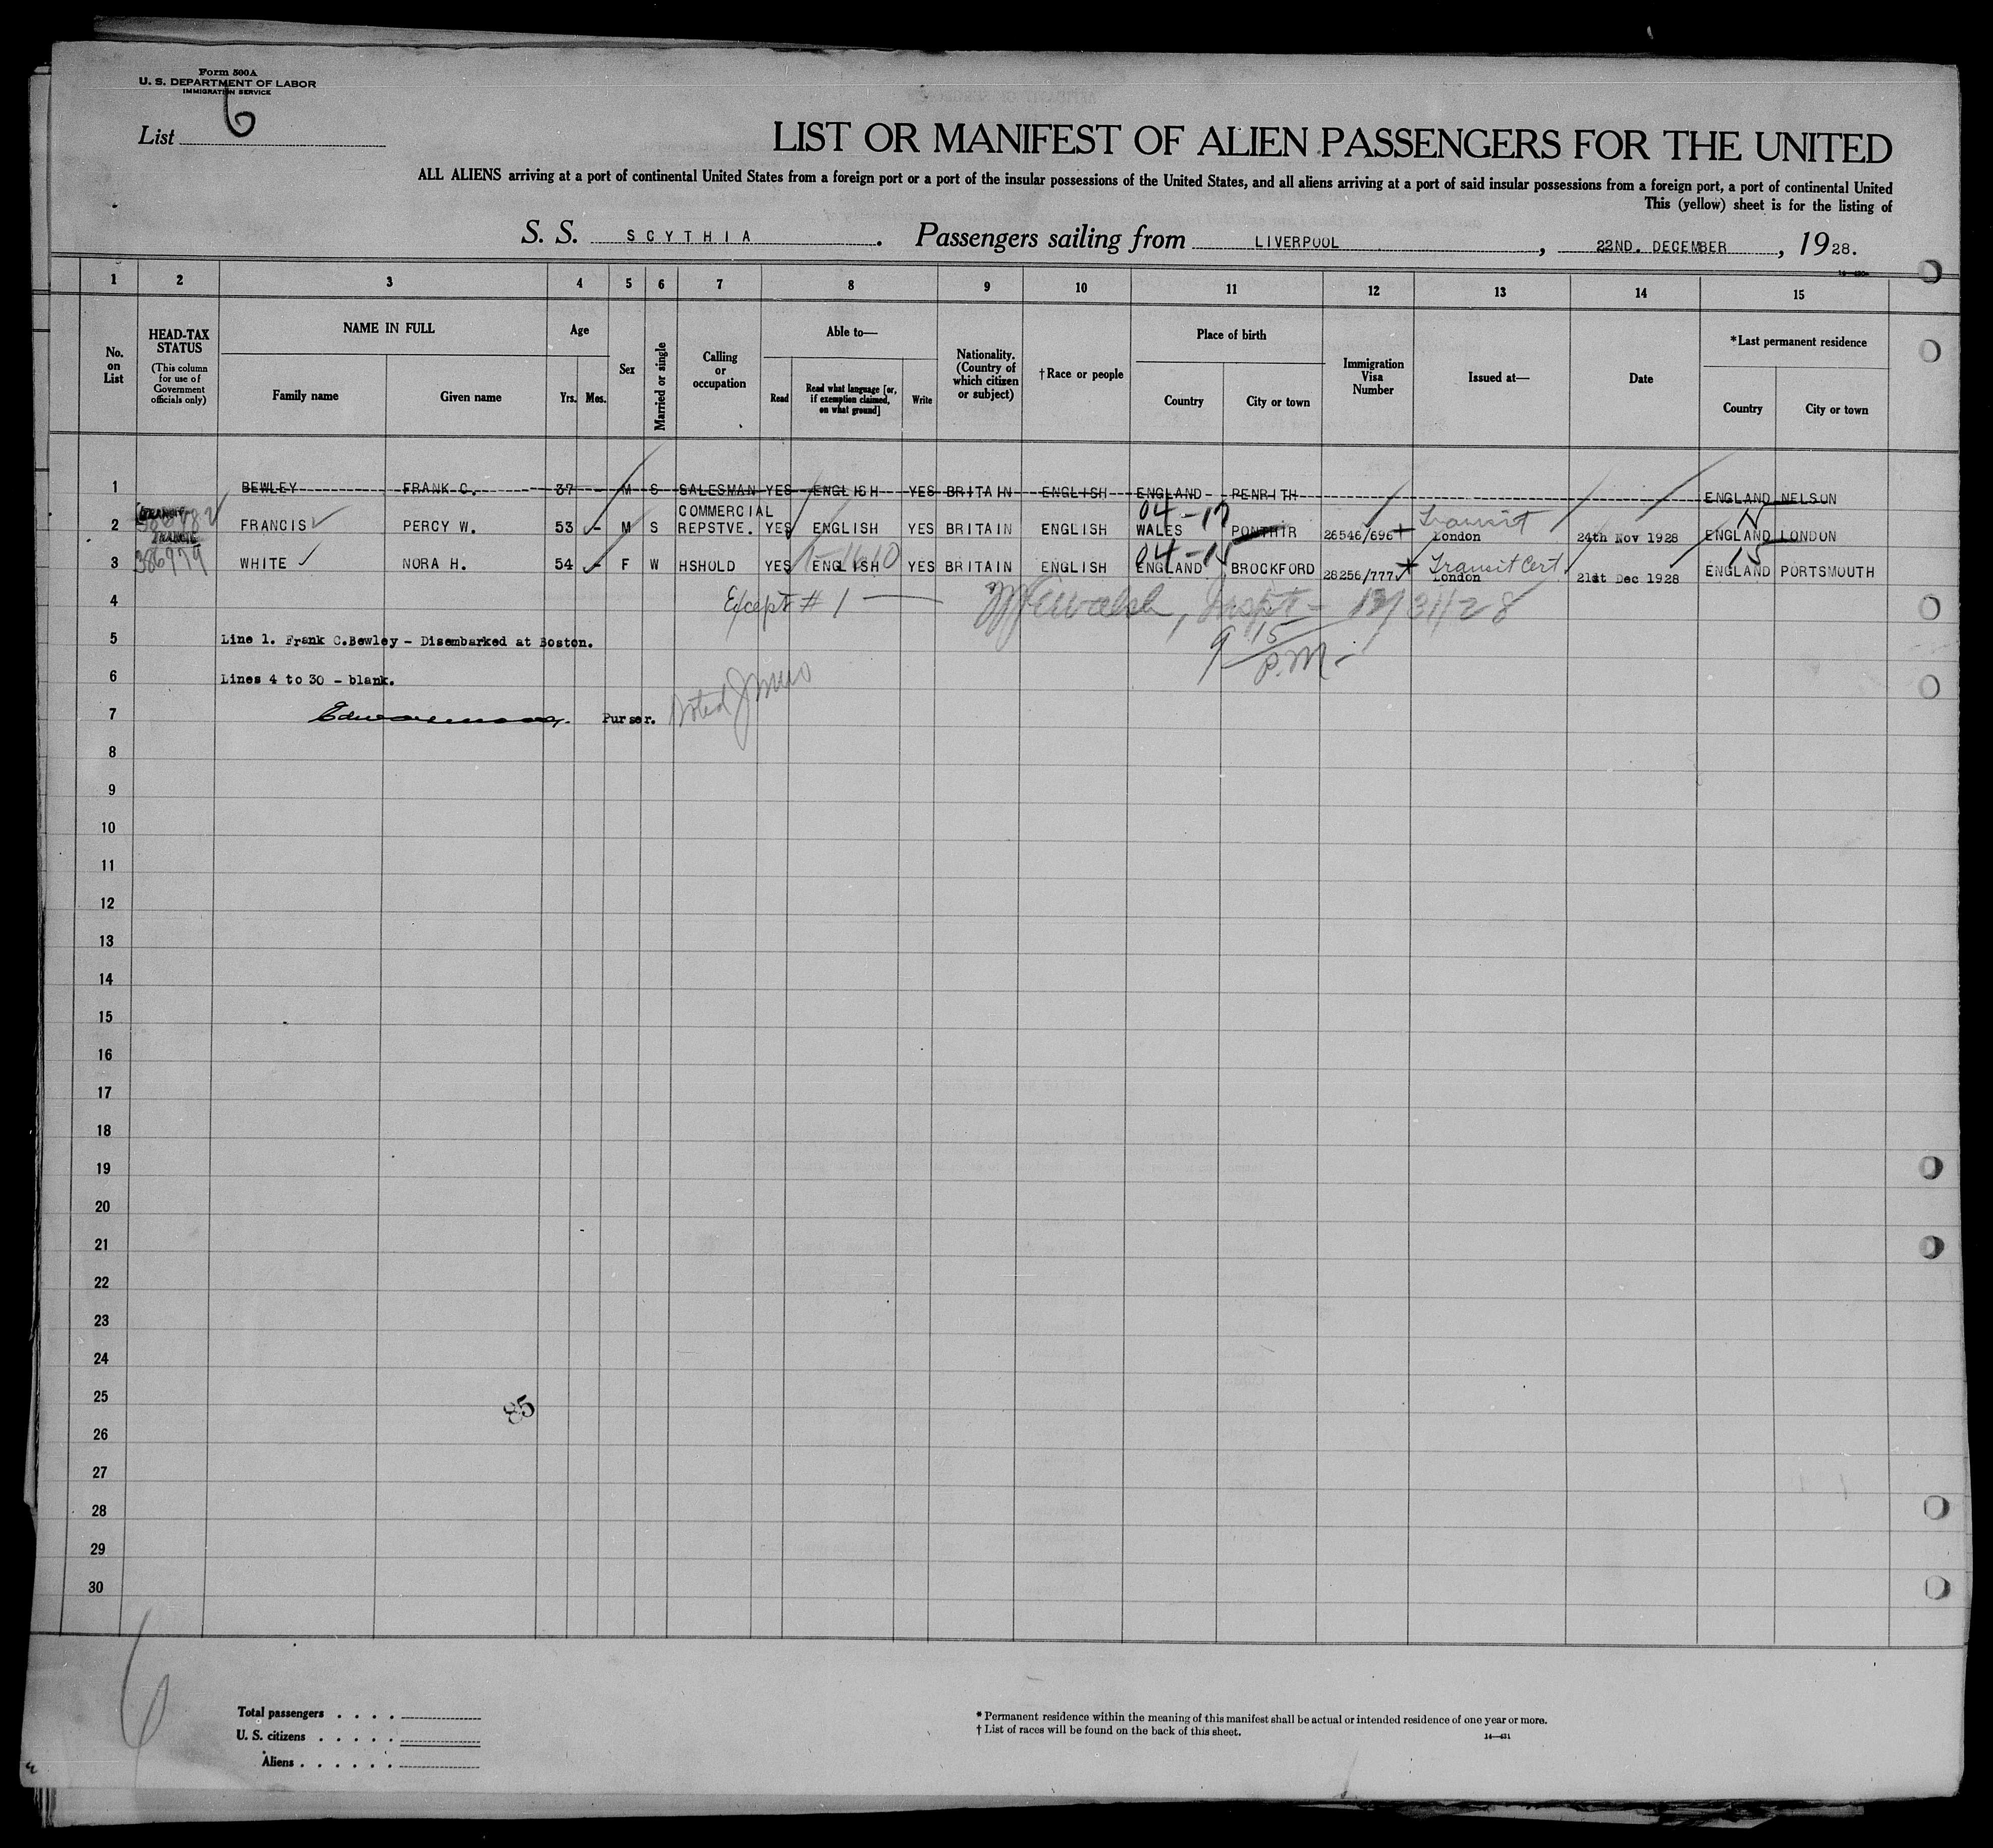 Form 500A
U. S. DEPARTMENT OF LABOR
IMMIGRATION SERVICE
List 6
LIST OR MANIFEST OF ALIEN PASSENGERS FOR THE UNITED
ALL ALIENS arriving at a port of continental United States from a foreign port or a port of the insular possessions of the United States, and all aliens arriving at a port of said insular possessions from a foreign port, a port of continental United
This (yellow) sheet is for the listing of
S. S. SCYTHIA. Passengers sailing from LIVERPOOL, 22ND. DECEMBER, 1928.
1 2 3 4 5 6 7 8 9 10 11 12 13 14 15
No. on List
HEAD-TAX STATUS
(This column for use of Government officials only)
NAME IN FULL
Family name
Given name
Age
Yrs. Mos.
Sex
Married or single
Calling or occupation
Able to—
Read
Read what language [or, if exemption claimed, on what ground]
Write
Nationality. (Country of which citizen or subject)
†Race or people
Place of birth
Country
City or town
Immigration Visa Number
Issued at—
Date
*Last permanent residence
Country
City or town
1 BEWLEY FRANK C. 37 M S SALESMAN YES ENGLISH YES BRITAIN ENGLISH ENGLAND PENRITH ENGLAND NELSON
2 FRANCIS PERCY W. 53 - M S COMMERCIAL REPSTVE. YES ENGLISH YES BRITAIN ENGLISH WALES PONTHIR 26546/696 Transit London 24th Nov 1928 ENGLAND LONDON
3 386979 WHITE NORA H. 54 - F W HSHOLD YES ENGLISH YES BRITAIN ENGLISH ENGLAND BROCKFORD 28256/777 Transit Cert. London 21st Dec 1928 ENGLAND PORTSMOUTH
4 Except # 1 Inspt - 12/31/28
9 15 P.M.
5 Line 1. Frank C.Bewley - Disembarked at Boston.
6 Lines 4 to 30 - blank.
7 Purser. Noted
8
9
10
11
12
13
14
15
16
17
18
19
20
21
22
23
24
25
85
26
27
28
29
30
6
Total passengers . . . .
U. S. citizens . . . . .
Aliens . . . . . .
* Permanent residence within the meaning of this manifest shall be actual or intended residence of one year or more.
† List of races will be found on the back of this sheet.
14—431